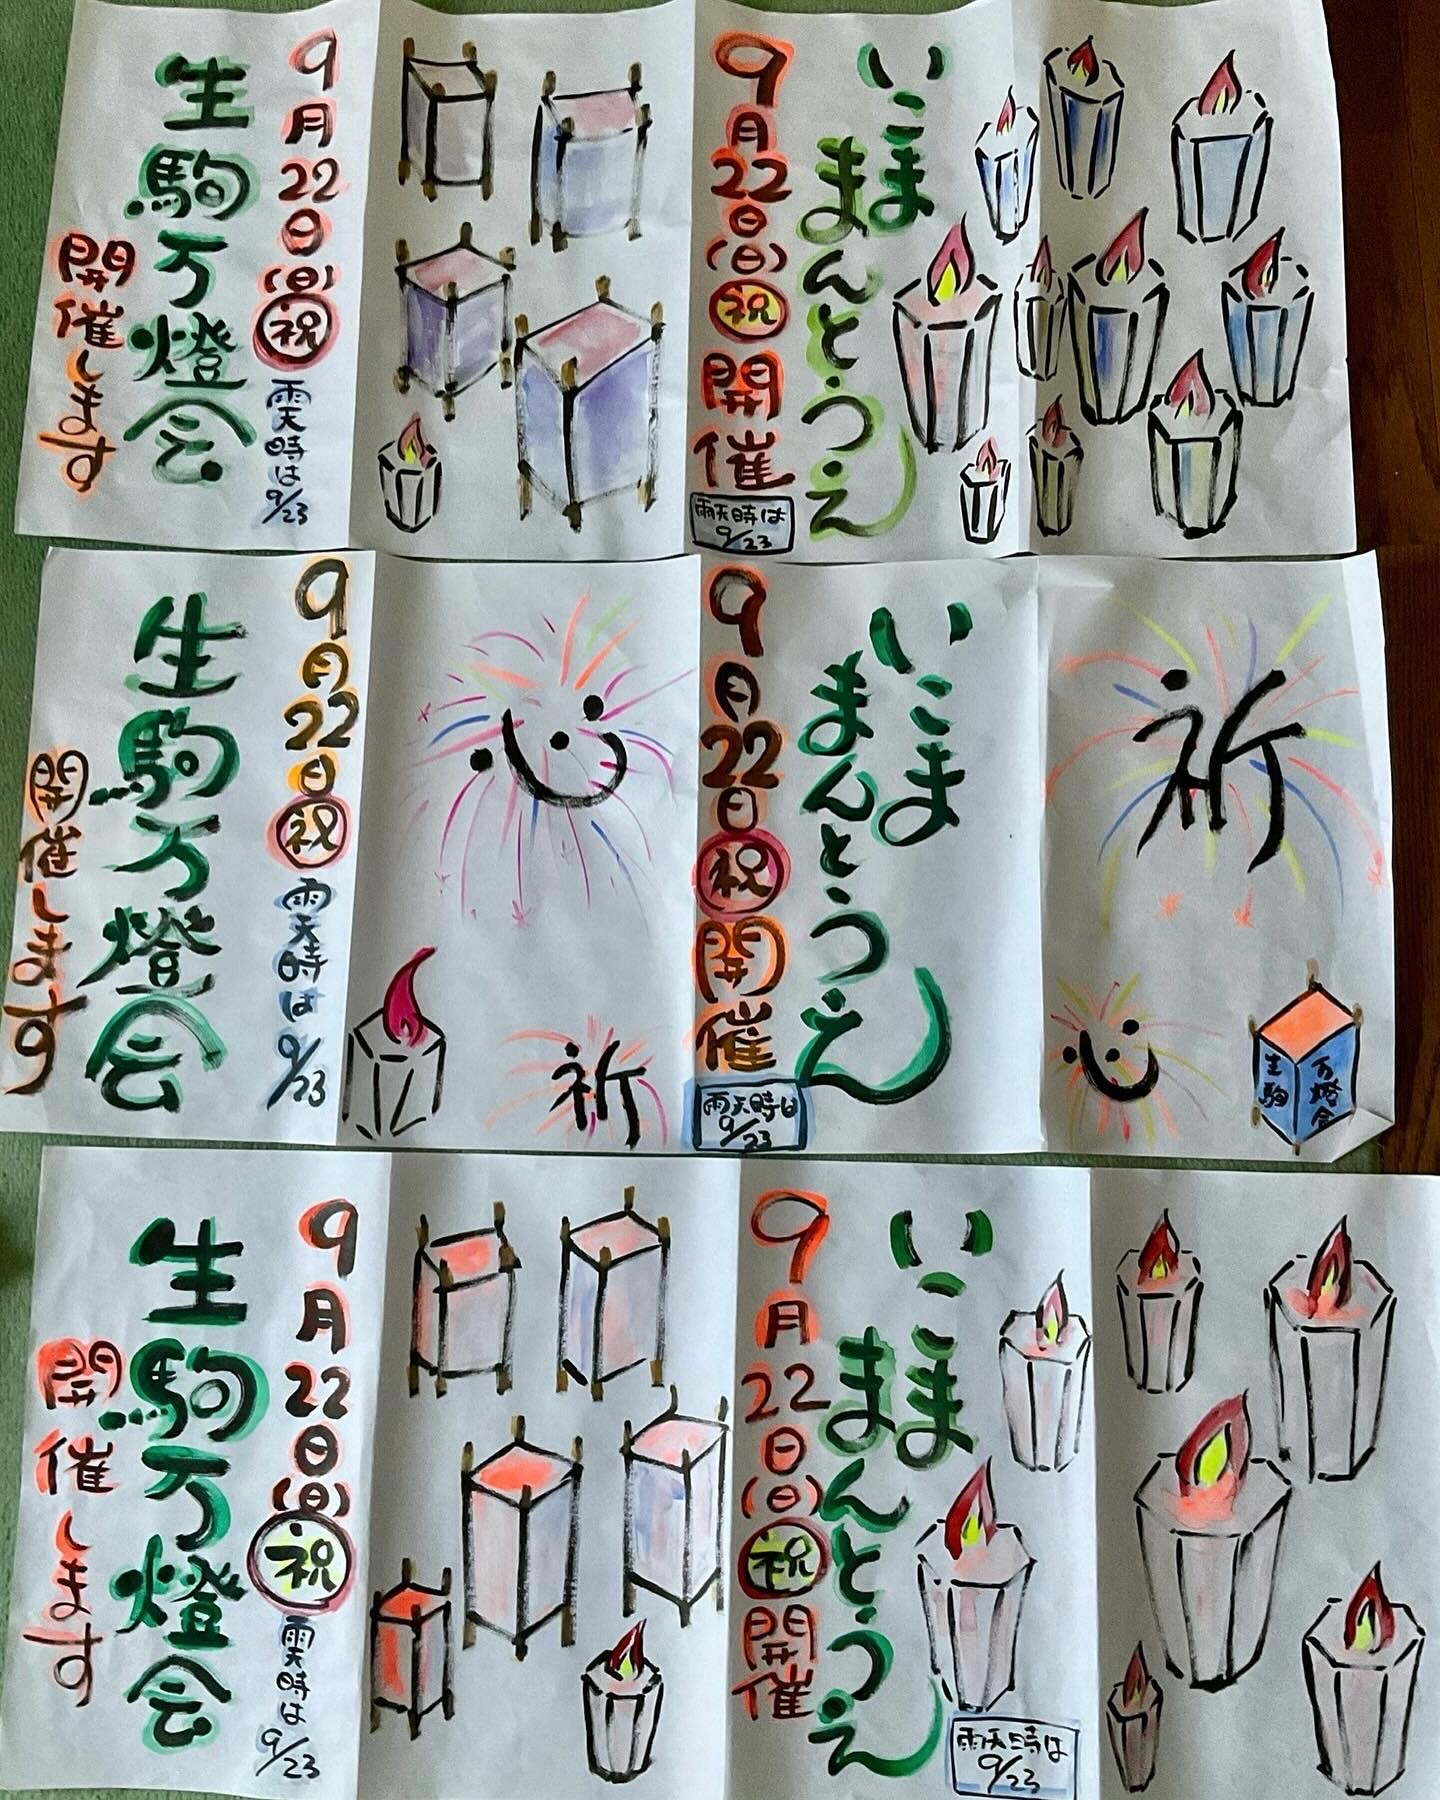 いこま
まんとうえ
9月22日(日)祝開催
雨天時は
9/23
9月22日(日)祝
雨天時は9/23
生駒万燈会
開催します
祈
心
生駒
万燈会
いこま
まんとうえ
9月22日祝開催
雨天時は
9/23
心
祈
9月22日祝
雨天時は9/23
生駒万燈会
開催します
いこま
まんとうえ
9月22日(日)祝開催
雨天時は
9/23
9月22日(日)祝
雨天時は9/23
生駒万燈会
開催します